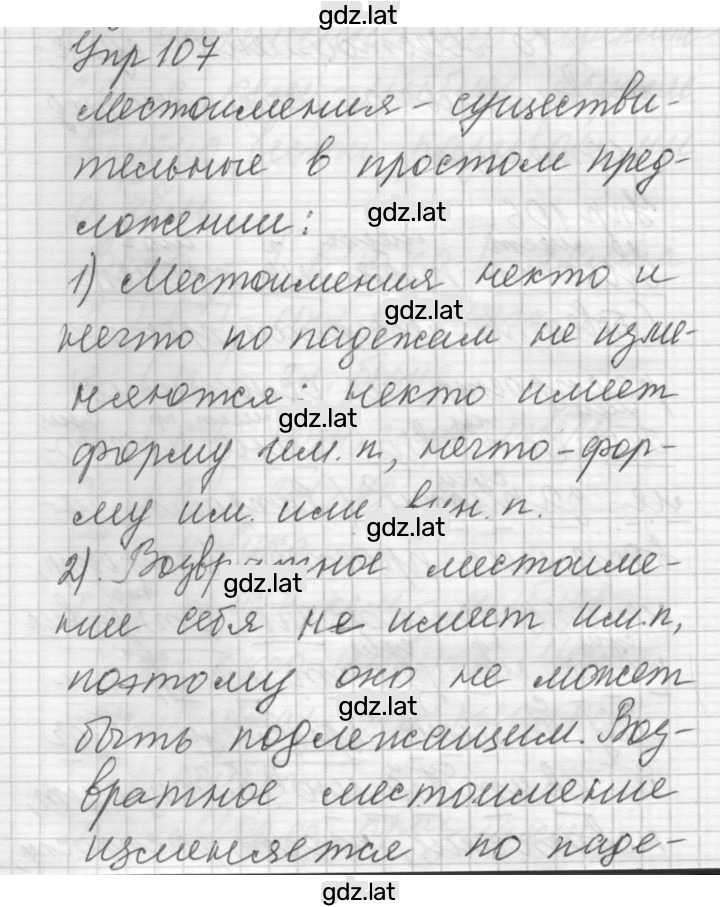 gdz.lat
Упр 107
Местоимения - существи-
тельные в простом пред-
ложении:
gdz.lat
1) Местоимения некто и
gdz.lat
нечто по падежам не изме-
няются: некто имеет
gdz.lat
форму им.п, нечто - фор-
му им. или вин. п.
gdz.lat
2). Возвратное местоиме-
gdz.lat
ние себя не имеет им.п,
поэтому оно не может
gdz.lat
быть подлежащим. Воз-
вратное местоимение
изменяется по паде-
gdz.lat